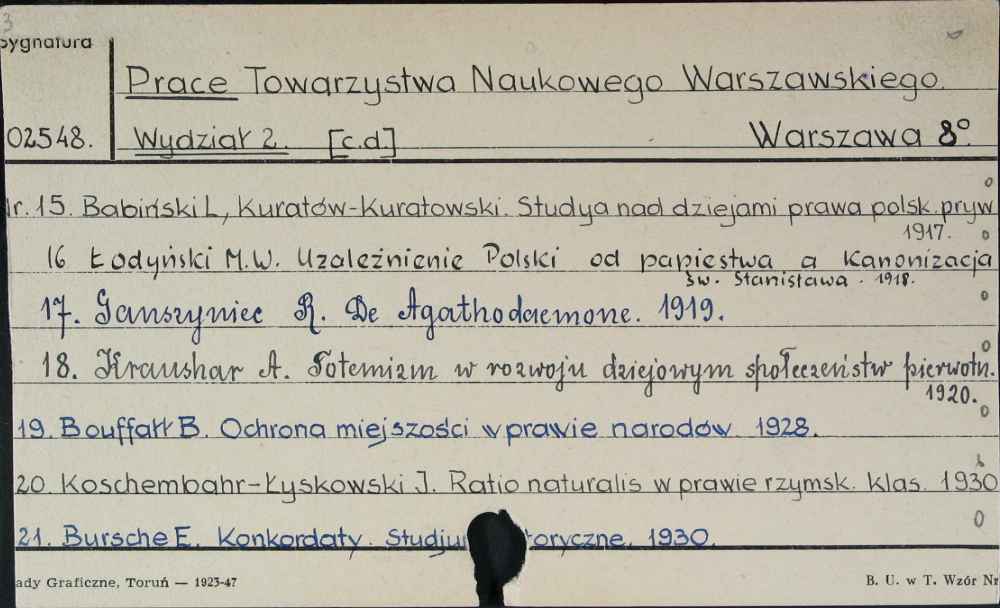 3
Sygnatura
Prace Towarzystwa Naukowego Warszawskiego.
02548. Wydział 2. [c.d.] Warszawa 8°.
Nr. 15. Babiński L, Kuratów-Kuratowski. Studya nad dziejami prawa polsk. pryw
1917.
16 Łodyński M.W. Uzależnienie Polski od papiestwa a Kanonizacja
św. Stanisława. 1918.
17. Ganszyniec R. De Agathodaemone. 1919.
18. Kraushar A. Totemizm w rozwoju dziejowym społeczeństw pierwotn.
1920.
19. Bouffałł B. Ochrona miejszości w prawie narodów. 1928.
20. Koschembahr-Łyskowski J. Ratio naturalis w prawie rzymsk. klas. 1930
21. Bursche E. Konkordaty. Studju toryczne. 1930.
ady Graficzne, Toruń — 1923-47 B. U. w T. Wzór Nr